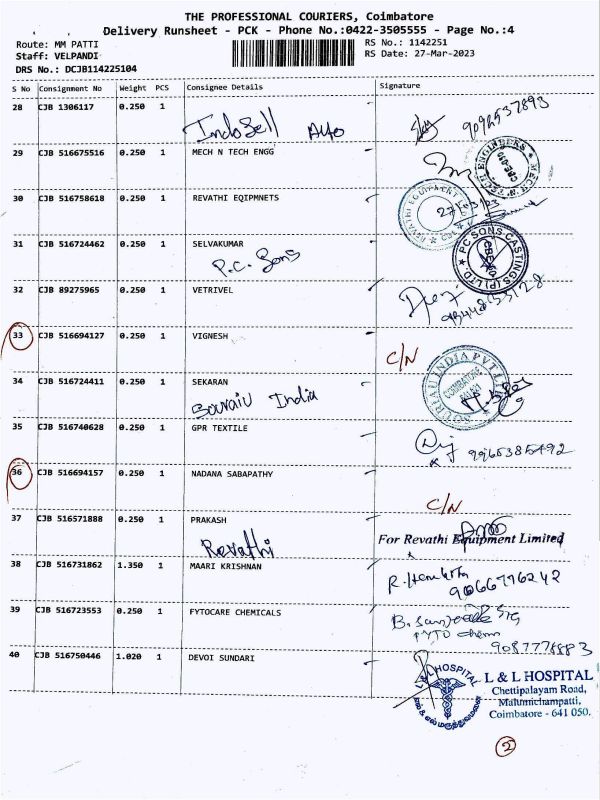 THE PROFESSIONAL COURIERS, Coimbatore
Delivery Runsheet - PCK - Phone No.:0422-3505555 - Page No.:4
Route: MM PATTI RS No.: 1142251
Staff: VELPANDI RS Date: 27-Mar-2023
DRS No.: DCJB114225104
S No Consignment No Weight PCS Consignee Details Signature
28 CJB 1306117 0.250 1
IndoSell Auto
29 CJB 516675516 0.250 1 MECH N TECH ENGG
30 CJB 516758618 0.250 1 REVATHI EQIPMNETS
31 CJB 516724462 0.250 1 SELVAKUMAR
P.C. Sons
PC SONS CASTINGS (P) LTD
32 CJB 89275965 0.250 1 VETRIVEL
33 CJB 516694127 0.250 1 VIGNESH C/N
34 CJB 516724411 0.250 1 SEKARAN
Souraiu India
COIMBATORE
35 CJB 516740628 0.250 1 GPR TEXTILE
9965385492
36 CJB 516694157 0.250 1 NADANA SABAPATHY
C/N
37 CJB 516571888 0.250 1 PRAKASH
Revathi
For Revathi Equipment Limited
38 CJB 516731862 1.350 1 MAARI KRISHNAN
9066796242
39 CJB 516723553 0.250 1 FYTOCARE CHEMICALS
9087778883
40 CJB 516750446 1.020 1 DEVOI SUNDARI
L & L HOSPITAL
L & L HOSPITAL
Chettipalayam Road,
Malumichampatti,
Coimbatore - 641 050.
2